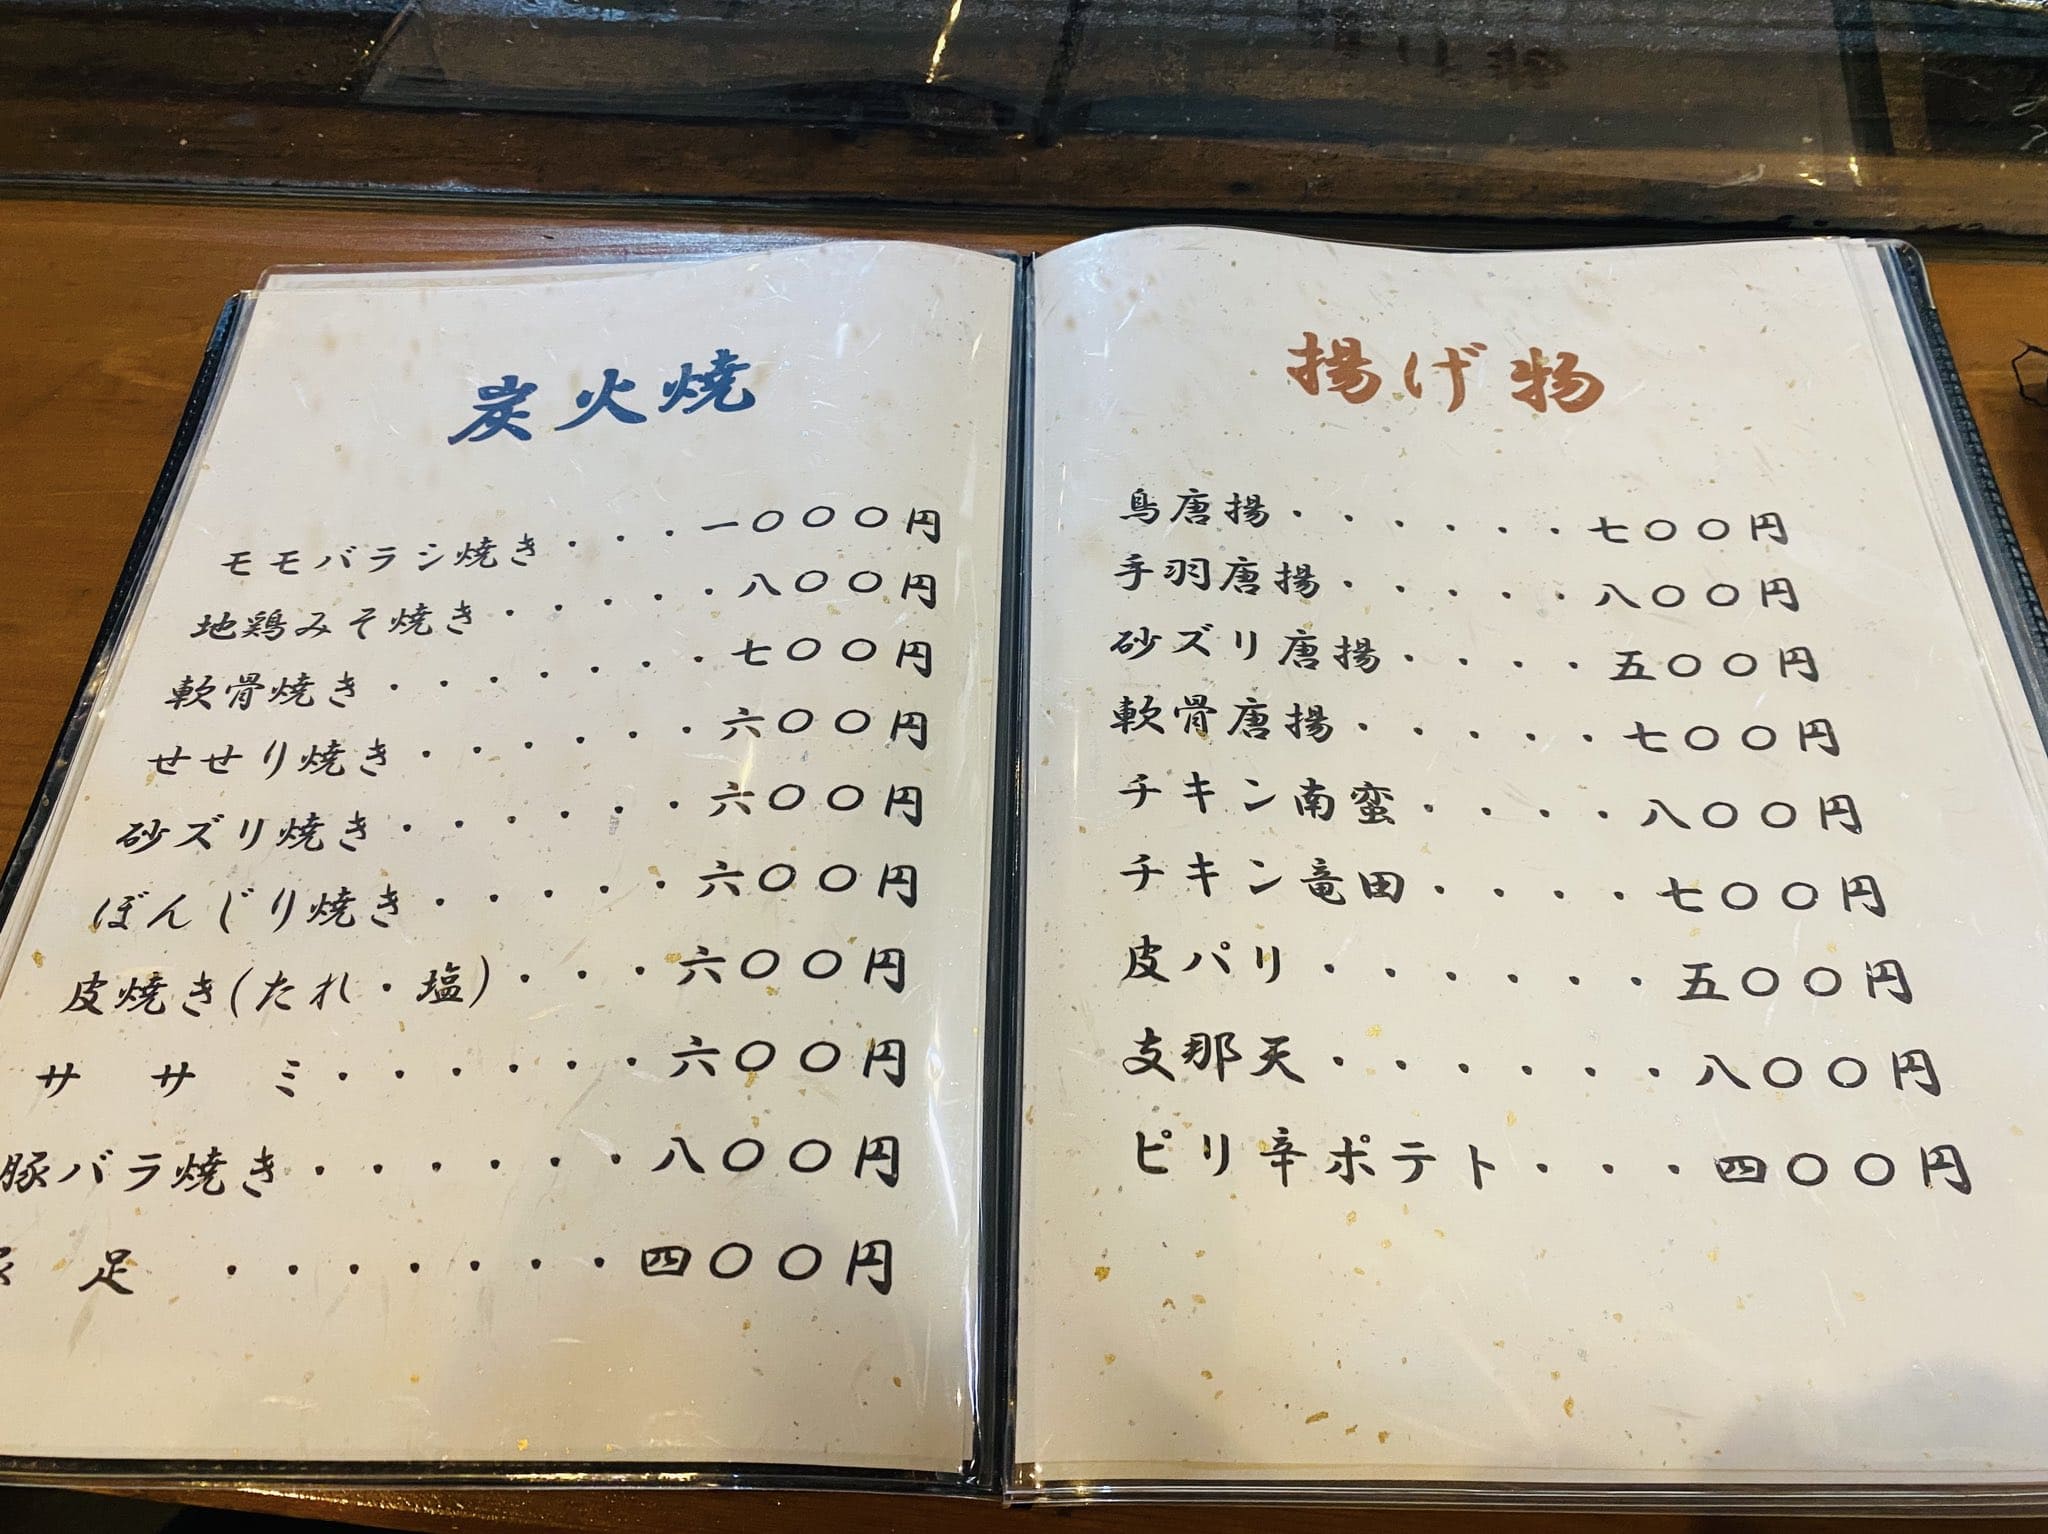 炭火焼
モモバラシ焼き・・・一〇〇〇円
地鶏みそ焼き・・・・・八〇〇円
軟骨焼き・・・・・・・七〇〇円
せせり焼き・・・・・・六〇〇円
砂ズリ焼き・・・・・・六〇〇円
ぼんじり焼き・・・・・六〇〇円
皮焼き(たれ・塩)・・・六〇〇円
ササミ・・・・・・六〇〇円
豚バラ焼き・・・・・・八〇〇円
足・・・・・・・四〇〇円
揚げ物
鳥唐揚・・・・・・七〇〇円
手羽唐揚・・・・・八〇〇円
砂ズリ唐揚・・・・五〇〇円
軟骨唐揚・・・・・七〇〇円
チキン南蛮・・・・八〇〇円
チキン竜田・・・・七〇〇円
皮パリ・・・・・・五〇〇円
支那天・・・・・・八〇〇円
ピリ辛ポテト・・・四〇〇円